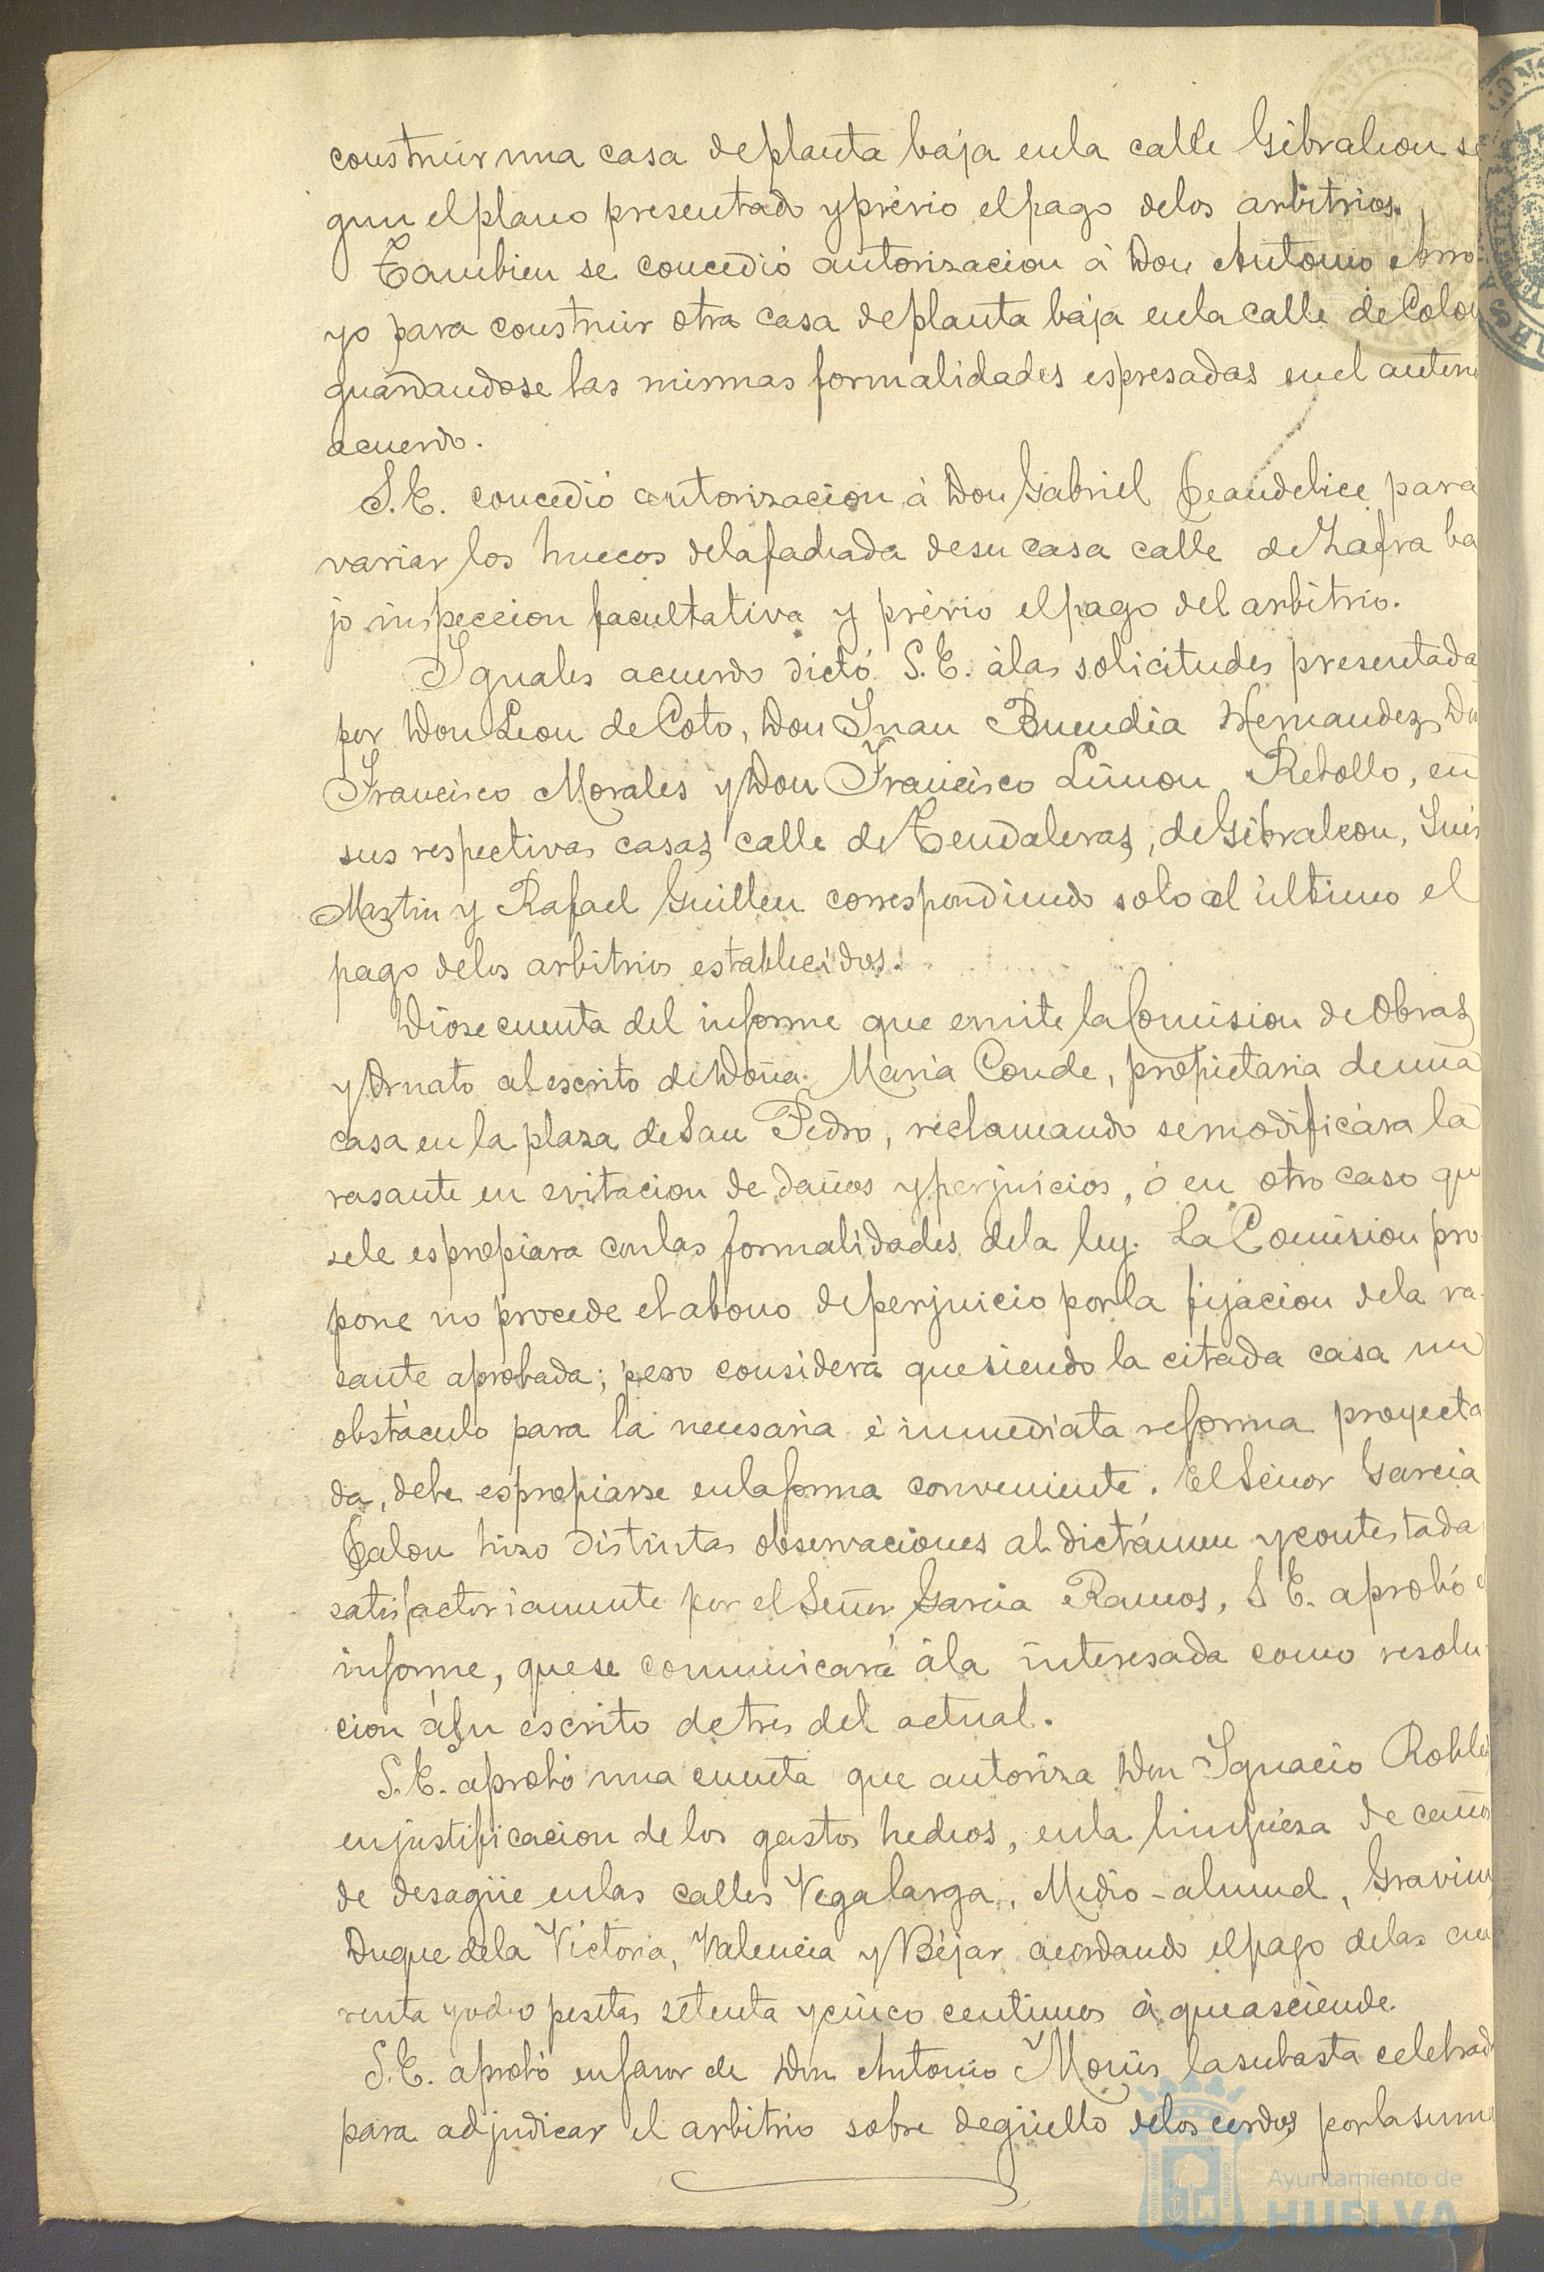 construir una casa de planta baja en la calle Gibraleon se
gun el plano presentado y prévio el pago de los arbitrios.
Tambien se concedió autorizacion á Don Antonio Arro-
yo para construir otra casa de planta baja en la calle de Colon
guardandose las mismas formalidades espresadas en el anteri
acuerdo.
S.E. concedió autorizacion á Don Gabriel para
variar los huecos de la fachada de su casa calle de Zafra ba
jo inspeccion facultativa y prévio el pago del arbitrio.
Iguales acuerdo dictó S.E. á las solicitudes presentada
por Don Leon de Coto, Don Juan Buendia Hernandez, Don
Francisco Morales y Don Francisco Limon Rebollo, en
sus respectivas casas calle de Tendaleras, de Gibraleon, Luis
Martin y Rafael Guillen correspondiendo solo al último el
pago de los arbitrios establecidos.
Diose cuenta del informe que emite la Comision de Obras
y Ornato al escrito de Doña Maria Conde, propietaria de una
casa en la plaza de San Pedro, reclamando se modificára la
rasante en evitacion de daños y perjuicios, ó en otro caso que
se le espropiara con las formalidades de la ley. La Comision pro
pone no procede el abono de perjuicio por la fijacion de la ra-
sante aprobada; pero considera que siendo la citada casa un
obstáculo para la necesaria é inmediata reforma proyecta
da, debe espropiarse en la forma conveniente. El Señor Garcia
Jalon hizo distintas observaciones al dictámen y contestada
satisfactoriamente por el Señor Garcia Ramos, S.E. aprobó el
informe, que se comunicará á la interesada como resolu-
cion á su escrito de tres del actual.
S.E. aprobó una cuenta que autoriza Don Ignacio Robles
en justificacion de los gastos hechos, en la limpieza de caños
de desagüe en las calles Vega larga, Medio-almud, Gravina
Duque de la Victoria, Valencia y Béjar acordando el pago de las cua
renta y ocho pesetas setenta y cinco centimos á que asciende.
S.E. aprobó en favor de Don Antonio la subasta celebrada
para adjudicar el arbitrio sobre degüello de los cerdos por la suma
Ayuntamiento de
HUELVA